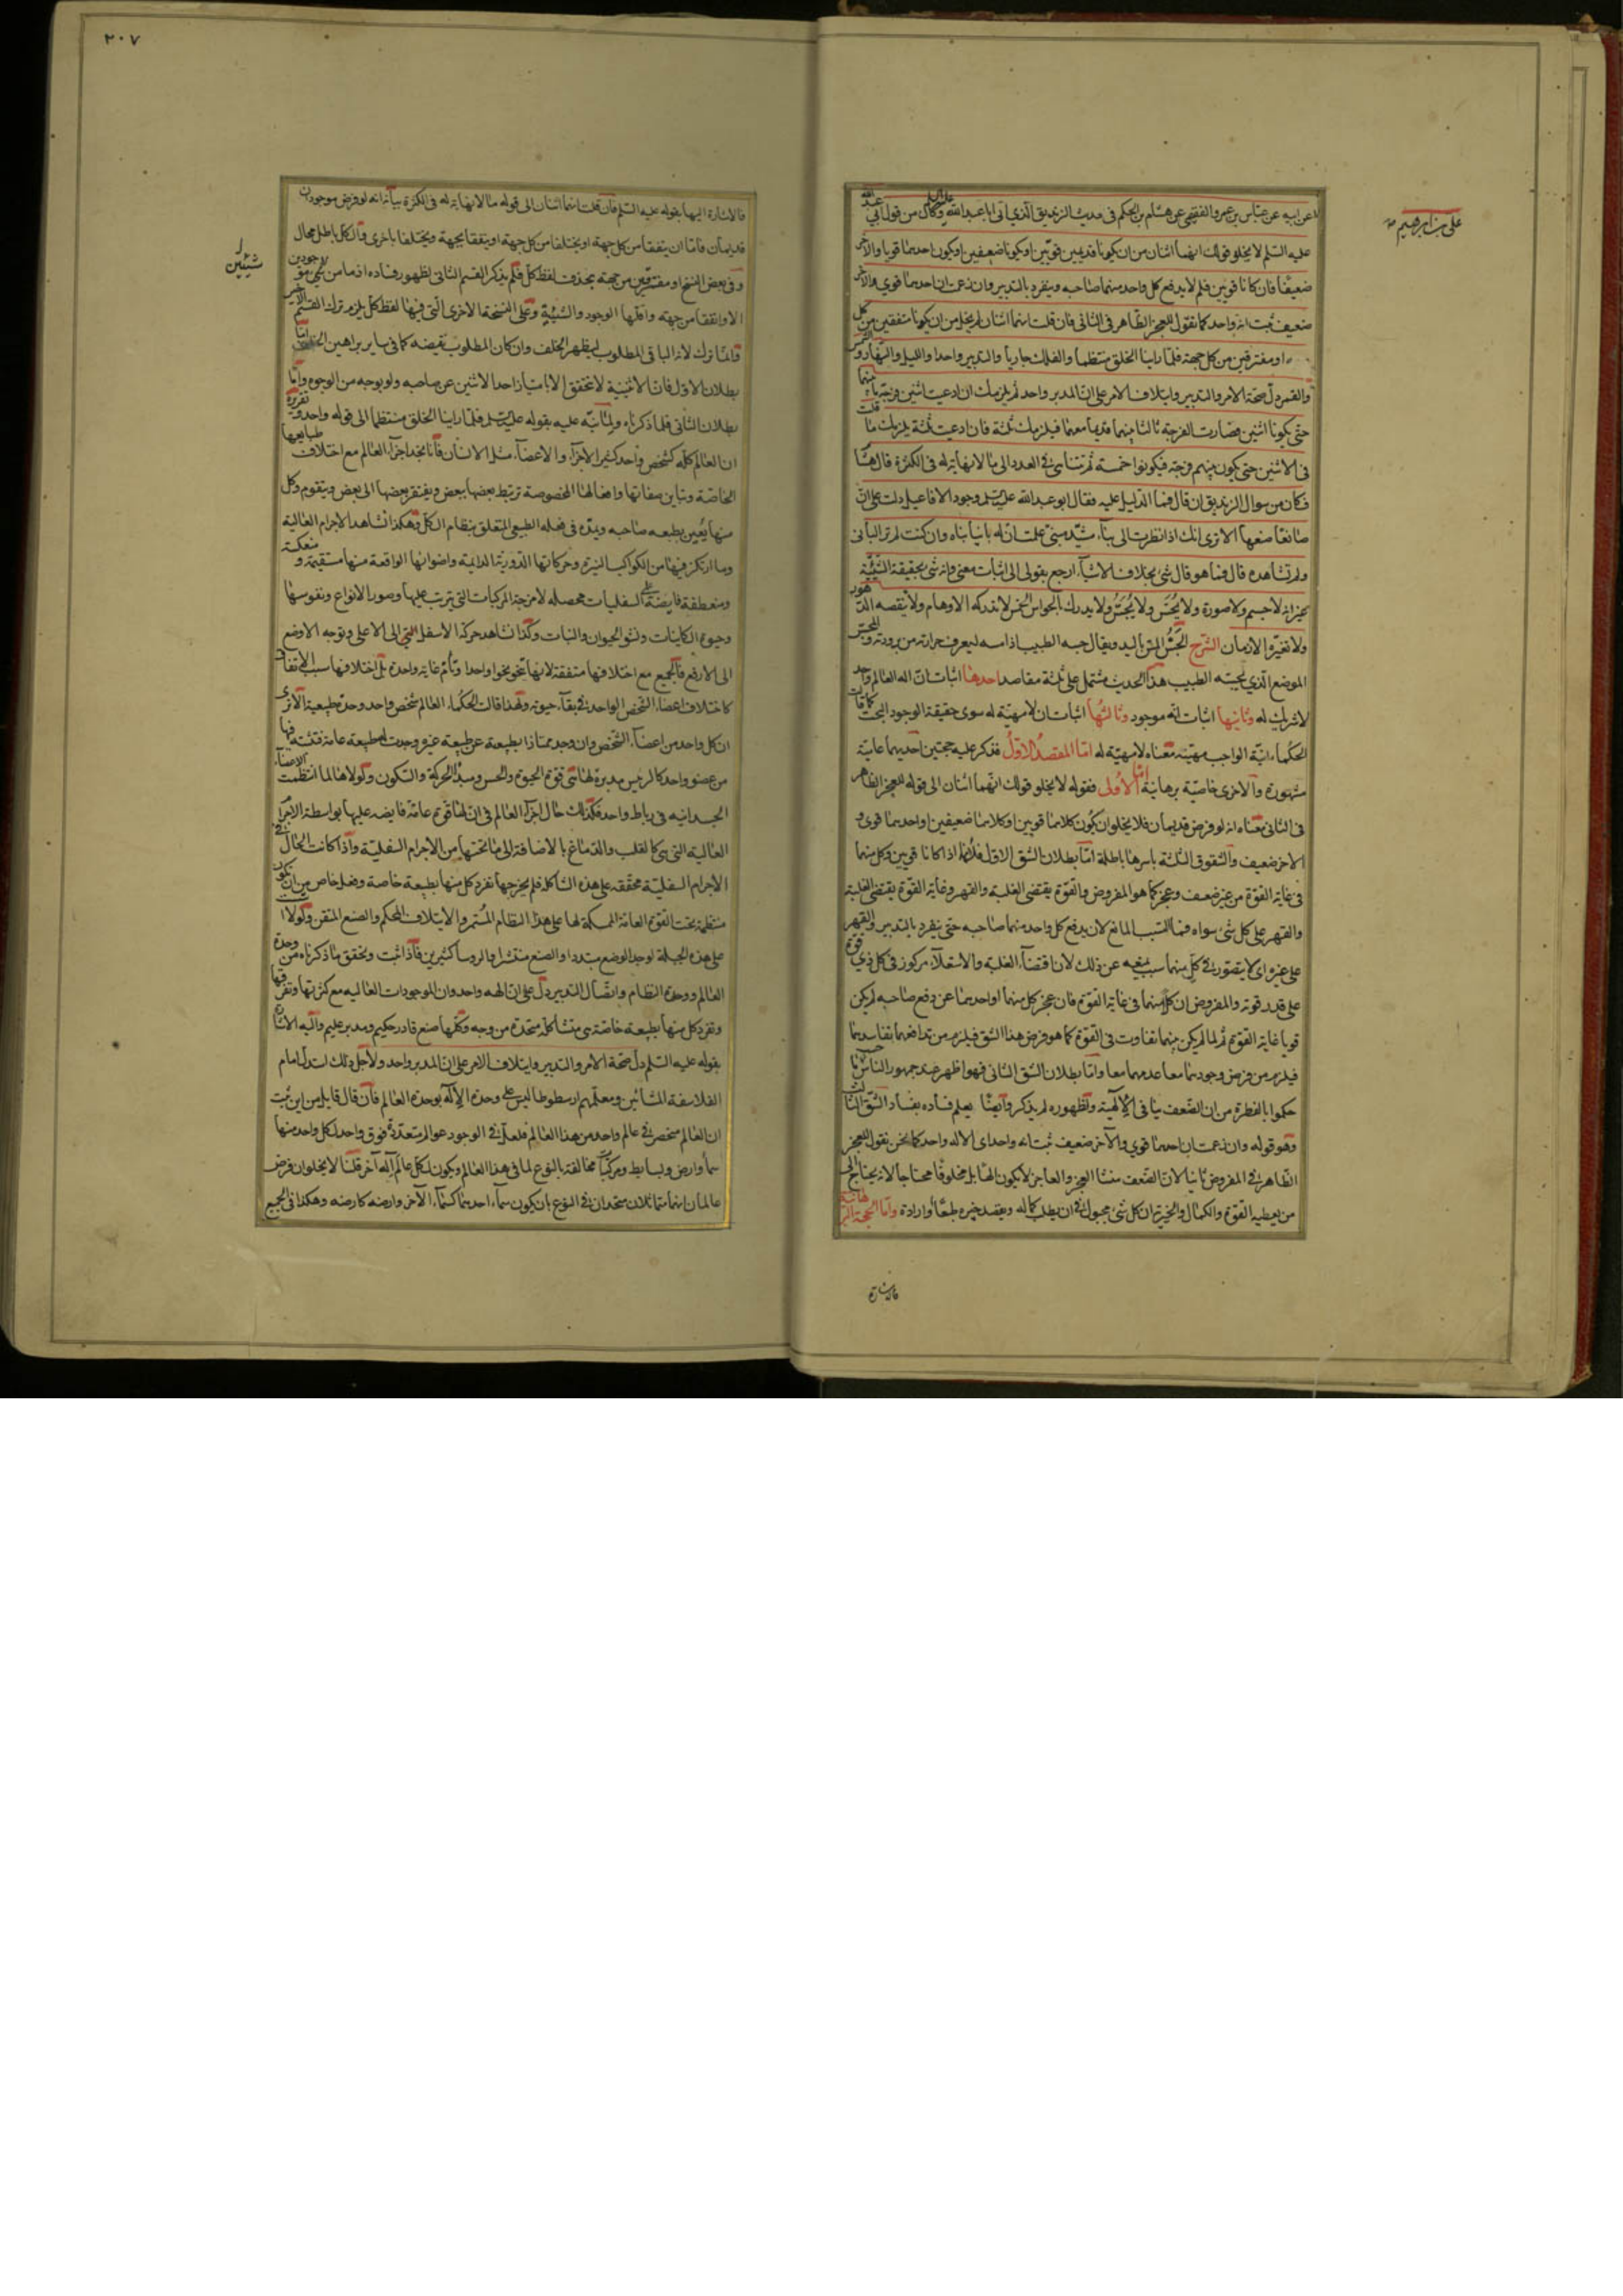 عن ابيه عن عباس بن عمرو الفقيمي عن هشام بن الحكم في حديث الزنديق الذي اتى ابا عبدالله وكان من قول ابي عبدالله
علي بن ابرهيم
عليه السلم لا يخلو قولك انهما اثنان من ان يكونا قديمين قويين او يكونا ضعيفين او يكون احدهما قويا والاخر
ضعيفا فان كانا قويين فلم لا يدفع كل واحد منهما صاحبه ويتفرد بالتدبير وان زعمت ان احدهما قوي والاخر
ضعيف ثبت انه واحد كما نقول للعجز الظاهر في الثاني فان قلت انهما اثنان لم يخل من ان يكونا متفقين من كل
او مفترقين من كل جهة فلما راينا الخلق منتظما والفلك جاريا والتدبير واحدا والليل والنهار والشمس
والقمر دل صحة الامر والتدبير وايتلاف الامر على ان المدبر واحد ثم يلزمك ان ادعيت اثنين فرجة ما بينهما
حتى يكونا اثنين فصارت الفرجة ثالثا بينهما قديما معهما فيلزمك ثلثة فان ادعيت ثلثة يلزمك ما قلت
في الاثنين حتى يكون بينهم فرجة فيكونوا خمسة ثم يتناهى في العدد الى ما لا نهاية له في الكثرة قال هشام
فكان من سوال الزنديق ان قال فما الدليل عليه فقال ابو عبدالله عليه السلم وجود الافاعيل دلت على ان
صانعا صنعها الا ترى انك اذا نظرت الى بناء مشيد مبني علمت ان له بانيا بناه وان كنت لم تر الباني
ولم تشاهده قال فما هو قال شئ بخلاف الاشياء ارجع بقولي الى اثبات معنى وانه شئ بحقيقة الشيئية
غير انه لا جسم ولا صورة ولا يحس ولا يجس ولا يدرك بالحواس الخمس لا تدركه الاوهام ولا تنقصه الدهور
ولا تغيره الازمان الشرح الجس المس باليد ويقال جسه الطبيب اذا مسه ليعرف حرارته من برودته والمجس
الموضع الذي يجسه الطبيب هذا الحديث مشتمل على ثلثة مقاصد احدها اثبات ان اله العالم واحد
لا شريك له وثانيها اثبات انه موجود وثالثها اثبات ان لا مهية له سوى حقيقة الوجود البحت كما قالت
الحكماء انية الواجب مهيته معناه لا مهية له اما المقصد الاول فذكر عليه حجتين احديهما عامية
مشهورة والاخرى خاصية برهانية اما الاولى فقوله لا يخلو قولك انهما اثنان الى قوله للعجز الظاهر
في الثاني معناه انه لو فرض قديمان فلا يخلو ان يكون كلاهما قويين او كلاهما ضعيفين او احدهما قوى و
الاخر ضعيف والشقوق الثلثة باسرها باطلة اما بطلان الشق الاول فلانهما اذا كانا قويين وكل منهما
في غاية القوة من غير ضعف وعجز كما هو المفروض والقوة يقتضى الغلبة والقهر وغاية القوة يقتضى الغلبة
والقهر على كل شئ سواه فما السبب المانع لان يدفع كل واحد منهما صاحبه حتى يتفرد بالتدبير والقهر
على غيره اي لا يتصور في كل منهما سبب يمنعه عن ذلك لان اقتضاء الغلبة والاستعلاء مركوز في كل ذي قوة
على قدر قوته والمفروض ان كلا منهما في غاية القوة فان عجز كل منهما او احدهما عن دفع صاحبه لم يكن
قويا غاية القوة ثم لما لم يكن بينهما تفاوت في القوة كما هو فرض هذا الشق فيلزم من تدافعهما تفاسدهما
فيلزم من فرض وجودهما معا عدمهما معا واما بطلان الشق الثاني فهو اظهر عند جمهور الناس
حكموا بالفطرة من ان الضعف ينافى الالهية ولظهوره لم يذكر وايضا يعلم فساده بفساد الشق الثالث
وهو قوله وان زعمت ان احدهما قوي والآخر ضعيف ثبت انه واحد اى الاله واحد كما نحن نقول للعجز
الظاهر في المفروض ثانيا لان الضعف منشأ العجز والعاجز لا يكون الها بل مخلوقا محتاجا لانه يحتاج الى
من يعطيه القوة والكمال والخيرية ان كل شئ مجبول في ان يطلب كماله ويقصد خيره طبعا وارادة واما الحجة البرهانية
فالاشارة
٢٠٧
فالاشارة اليها بقوله عليه السلم فان قلت انهما اثنان الى قوله ما لا نهاية له في الكثرة بيانه انه لو فرض موجودان
قديمان فاما ان يتفقا من كل جهة او يختلفا من كل جهة او يتفقا بجهة ويختلفا باخرى والكل باطل محال
شيئين
وفي بعض النسخ او مفترقين من جهة بحذف لفظ كل فلم يذكر القسم الثاني لظهور فساده اذ ما من موجودين
الا واتفقا من جهة واقلها الوجود والشيئية وعلى النسخة الاخرى التي فيها لفظ كل يلزم ترك القسم الاخير
وانما ترك لانه الباقى المطلوب ليظهر الخلف وان كان المطلوب نقيضه كما في ساير براهين الخلف اما
بطلان الاول فان الاثنينية لا تتحقق الا بامتياز احد الاثنين عن صاحبه ولو بوجه من الوجوه واما
بطلان الثاني فلما ذكرناه ولما نبه عليه بقوله عليه السلم فلما راينا الخلق منتظما الى قوله واحد وتقريره
ان العالم كله كشخص واحد كثير الاجزاء والاعضاء مثل الانسان فانا نجد اجزاء العالم مع اختلاف طبايعها
الخاصة وتباين صفاتها وافعالها المخصوصة ترتبط بعضها ببعض ويفتقر بعضها الى بعض ويتقوم وكل
منها يعين بطبعه صاحبه ويمده في فعله الطبيعى المتعلق بنظام الكل وهكذا نشاهد الاجرام العالية
وما ارتكز فيها من الكواكب النيرة وحركاتها الدورية الدايمة واضوائها الواقعة منها مستقيمة و منعكسة
ومنعطفة فايضة على السفليات محصلة لامزجة المركبات التي يترتب عليها صور الانواع ونفوسها
وحيوة الكاينات ونشو الحيوان والنبات وكذا نشاهد حركة الاسفل الى الاعلى وتوجه الاوضع
الى الارفع فالجميع مع اختلافها متفقة لانها تنحو نحوا واحدا وتؤم غاية واحدة بل اختلافها سبب الاتفاق
كاختلاف اعضاء الشخص الواحد في بقاء حيوته ولهذا قالت الحكماء العالم شخص واحد وحدة طبيعية الا ترى
ان كل واحد من اعضاء الشخص وان وجد ممتازا بطبيعة عن طبيعة غيره وجدت لها طبيعة عامة
من عضو واحد كالرئيس مدبرة لها هى قوة الحيوة والحس ومبدأ الحركة والسكون ولولاها لما انتظمت الاعضاء
الجسدانية في رباط واحد فكذلك حال اجزاء العالم في ان لها قوة عامة فايضه عليها بواسطة الاجرام
العالية التى هى كالقلب والدماغ بالاضافة الى ما تحتها من الاجرام السفلية واذا كانت الحال في
الاجرام السفلية محققه على هذه الشاكلة فلم يخرجها تفرد كل منها بطبيعة خاصة وفعل خاص من ان تكون
منتظمة تحت القوة العامة الممسكة لها على هذا النظام المستمر والايتلاف المحكم والصنع المتقن ولولا
على هذه الجبلة لوجد الوضع متبددا والصنع منتشرا والروسا كثيرين فاذا ثبت وتحقق ما ذكرناه من وحدة
العالم ووحدة النظام واتصال التدبير دل على ان الهه واحد وان الموجودات العالية مع كثرتها وتفرقها
وتفرد كل منها بطبيعة خاصة هى متشاكلة متحدة من وجه وكلها صنع قادر حكيم ومدبر عليم واليه الاشارة
بقوله عليه السلم دل صحة الامر والتدبير وايتلاف الامر على ان المدبر واحد ولاجل ذلك استدل امام
الفلاسفة المشائين ومعلمهم ارسطوطاليس على وحدة الاله بوحدة العالم فان قال قايل من اين ثبت
ان العالم منحصر في عالم واحد من هذا العالم فلعل في الوجود عوالم متعددة فوق واحد لكل واحد منها
سماء وارض وبسايط ومركبات مخالفة بالنوع لما في هذا العالم ويكون لكل عالم اله آخر قلنا لا يخلو ان فرض
عالمان انهما متماثلان متحدان في النوع بان يكون سماء احدهما كسماء الآخر وارضه كارضه وهكذا في الجميع